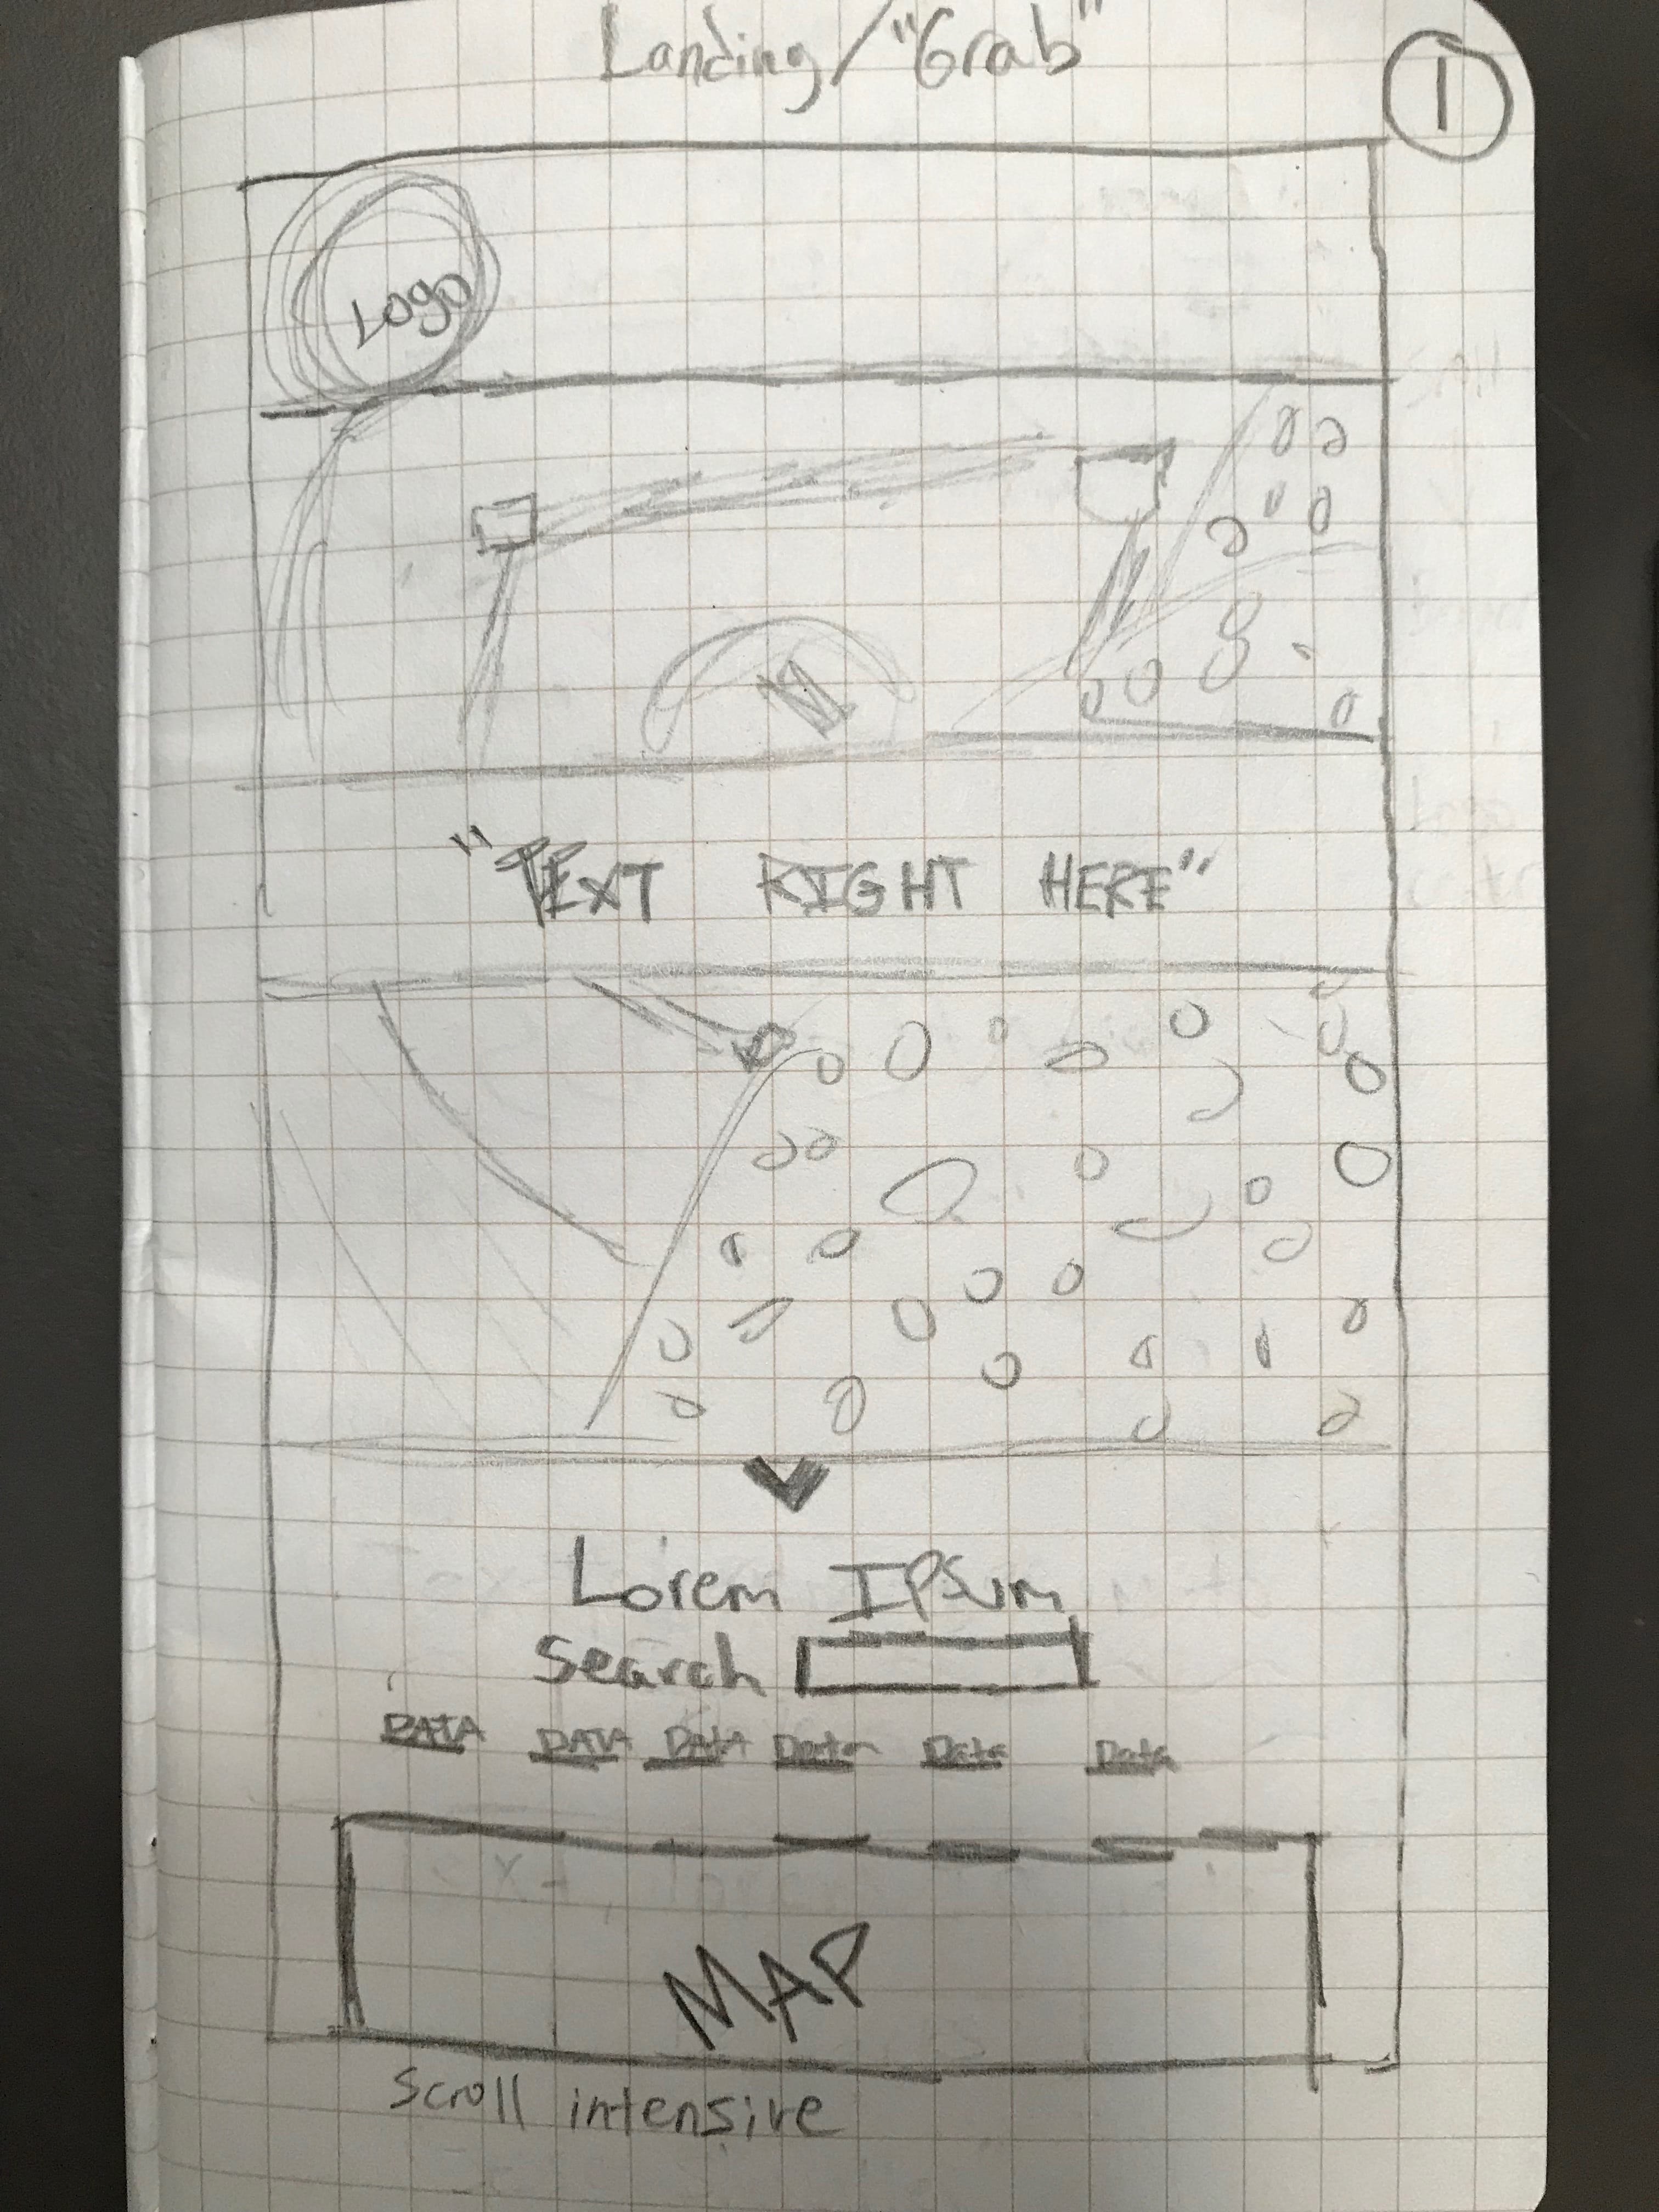 Landing/"Grab"
1
Logo
"TEXT RIGHT HERE"
Lorem IPSum
Search
DATA DATA DATA Data Data Data
MAP
Scroll intensive